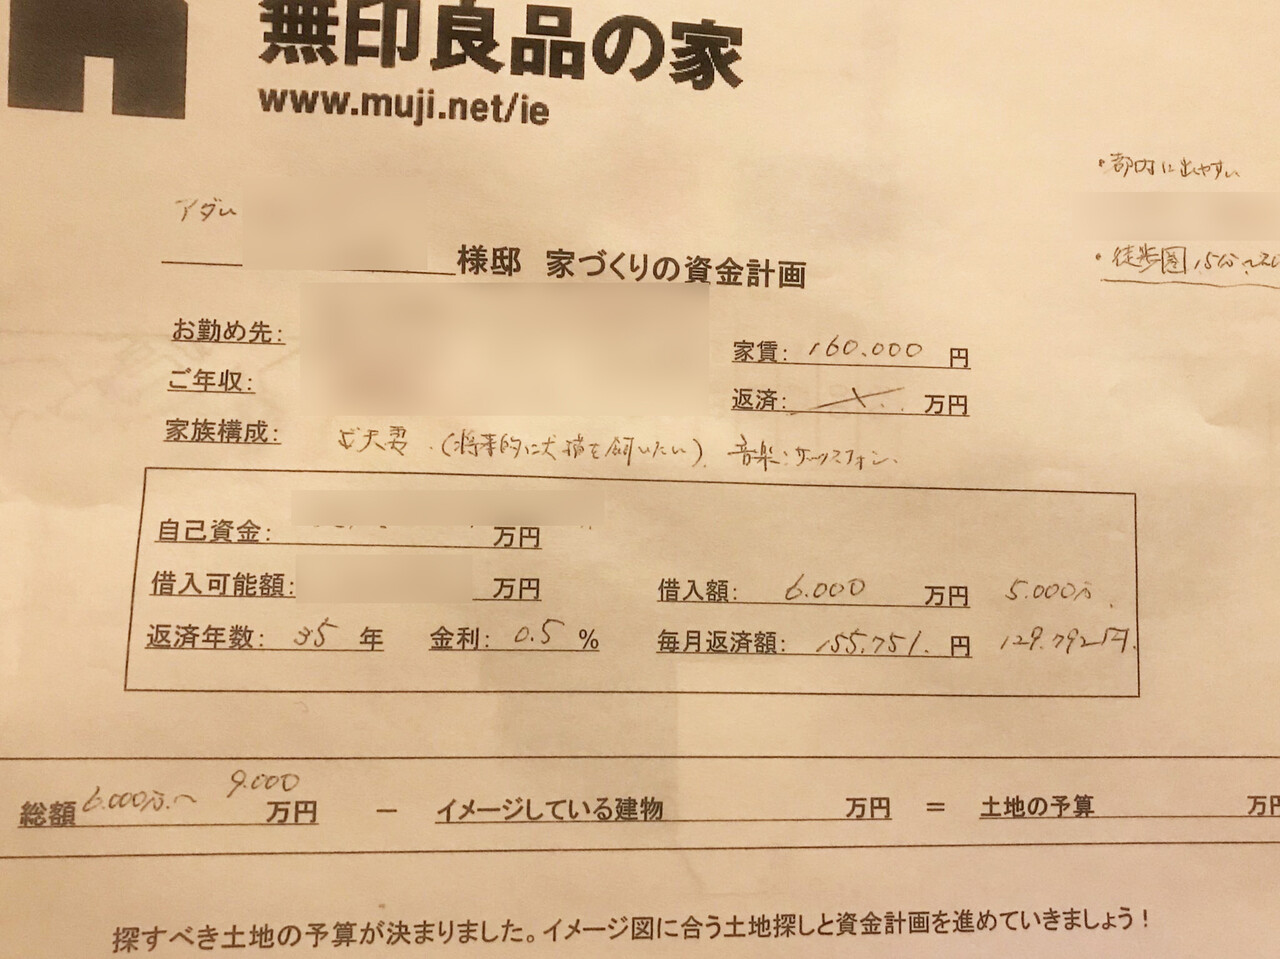 無印良品の家
www.muji.net/ie
・都内に出やすい
アダム
様邸 家づくりの資金計画
・徒歩圏 15分
お勤め先:
家賃: 160.000 円
ご年収:
返済: 万円
家族構成: ご夫妻 (将来的に犬猫を飼いたい) 音楽:サックスフォン.
自己資金: 万円
借入可能額: 万円
借入額: 6.000 万円 5.000万.
返済年数: 35 年 金利: 0.5 % 毎月返済額: 155.751. 円 129.792円.
総額 6.000万.〜 9.000 万円 － イメージしている建物 万円 ＝ 土地の予算 万円
探すべき土地の予算が決まりました。イメージ図に合う土地探しと資金計画を進めていきましょう!